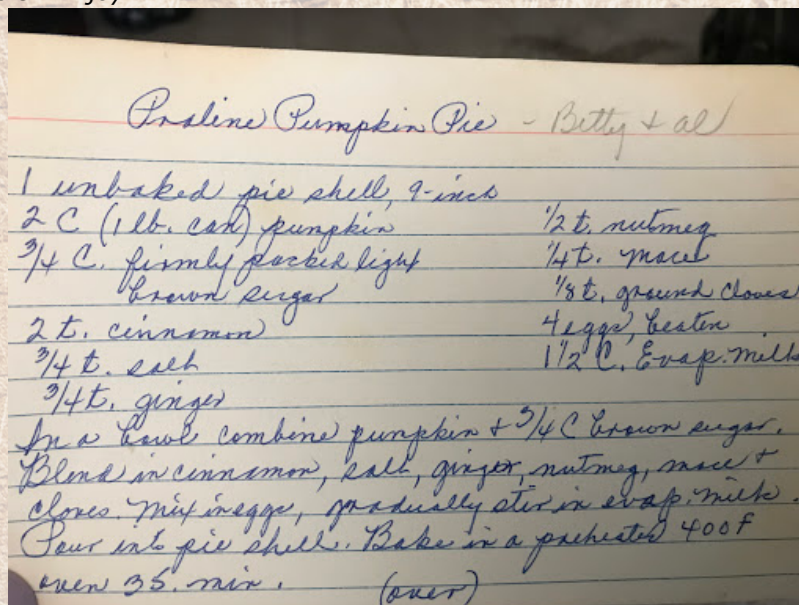 Praline Pumpkin Pie - Betty & al
1 unbaked pie shell, 9-inch
2 C (1 lb. can) pumpkin
3/4 C. firmly packed light
brown sugar
2 t. cinnamon
3/4 t. salt
3/4 t. ginger
1/2 t. nutmeg
1/4 t. mace
1/8 t. ground cloves
4 eggs, beaten
1 1/2 C. Evap. Milk
In a bowl combine pumpkin & 3/4 C brown sugar.
Blend in cinnamon, salt, ginger, nutmeg, mace &
cloves. Mix in eggs, gradually stir in evap. milk.
Pour into pie shell. Bake in a preheated 400 F
oven 35. min. (over)